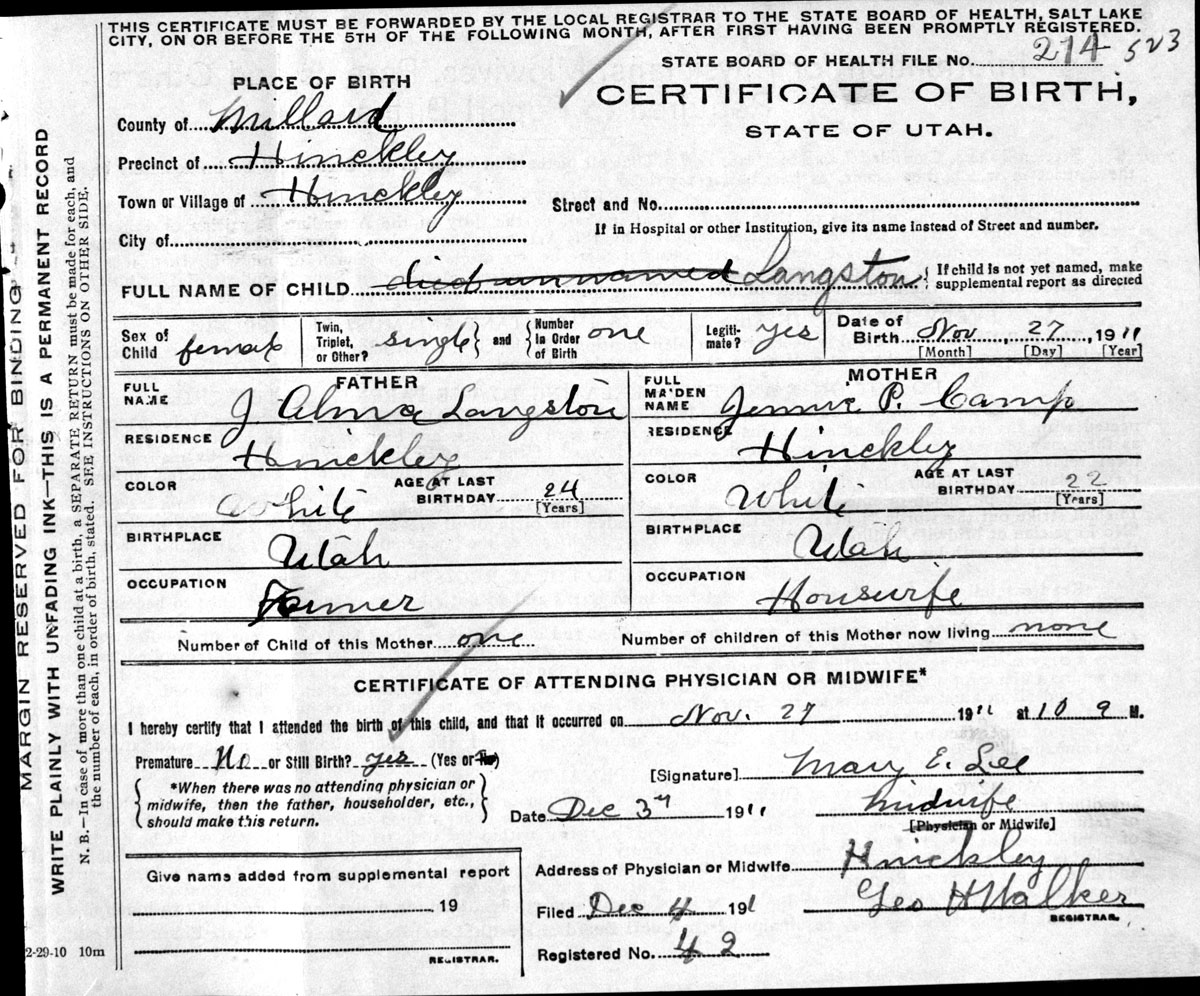 THIS CERTIFICATE MUST BE FORWARDED BY THE LOCAL REGISTRAR TO THE STATE BOARD OF HEALTH, SALT LAKE
CITY, ON OR BEFORE THE 5TH OF THE FOLLOWING MONTH, AFTER FIRST HAVING BEEN PROMPTLY REGISTERED.
STATE BOARD OF HEALTH FILE No. 214 523
PLACE OF BIRTH
CERTIFICATE OF BIRTH,
STATE OF UTAH.
County of Millard
Precinct of Hinckley
Town or Village of Hinckley
Street and No.
City of
If in Hospital or other Institution, give its name instead of Street and number.
FULL NAME OF CHILD died unnamed Langston { If child is not yet named, make
supplemental report as directed
Sex of Child female
Twin, Triplet, or Other? single } and { Number in Order of Birth one
Legitimate? yes
Date of Birth Nov. 27, 1911
[Month] [Day] [Year]
FATHER
FULL NAME J Alma Langston
RESIDENCE Hinckley
COLOR White AGE AT LAST BIRTHDAY 24 [Years]
BIRTHPLACE Utah
OCCUPATION Farmer
MOTHER
FULL MAIDEN NAME Jennie P. Camp
RESIDENCE Hinckley
COLOR White AGE AT LAST BIRTHDAY 22 [Years]
BIRTHPLACE Utah
OCCUPATION Housewife
Number of Child of this Mother one Number of children of this Mother now living none
CERTIFICATE OF ATTENDING PHYSICIAN OR MIDWIFE*
I hereby certify that I attended the birth of this child, and that it occurred on Nov. 27 1911 at 10 a M.
Premature No or Still Birth? yes (Yes or No)
*When there was no attending physician or
midwife, then the father, householder, etc.,
should make this return.
[Signature] Mary E. Lee
Date Dec 3rd 1911 Midwife
[Physician or Midwife]
Give name added from supplemental report
19
REGISTRAR.
Address of Physician or Midwife Hinckley
Filed Dec 4 191 Geo H Walker
REGISTRAR.
Registered No. 42
2-29-10 10m
MARGIN RESERVED FOR BINDING
WRITE PLAINLY WITH UNFADING INK—THIS IS A PERMANENT RECORD
N. B.—In case of more than one child at a birth, a SEPARATE RETURN must be made for each, and
the number of each, in order of birth, stated. SEE INSTRUCTIONS ON OTHER SIDE.